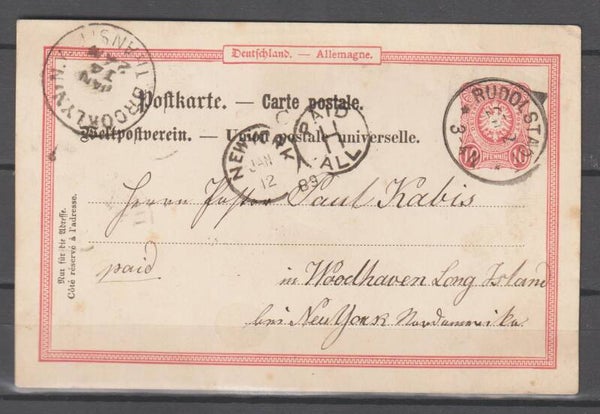 Deutschland. — Allemagne.
Postkarte. — Carte postale.
Weltpostverein. — Union postale universelle.
BROOKLYN, N.
JAN
14
RUDOLSTA
10 PFENNIG 10
NEW
JAN
12
89
PAID
ALL
Herrn Pastor Paul Kabis
in Woodhaven Long Island
bei New York Nordamerika.
paid
Nur für die Adresse.
Côté réservé à l'adresse.